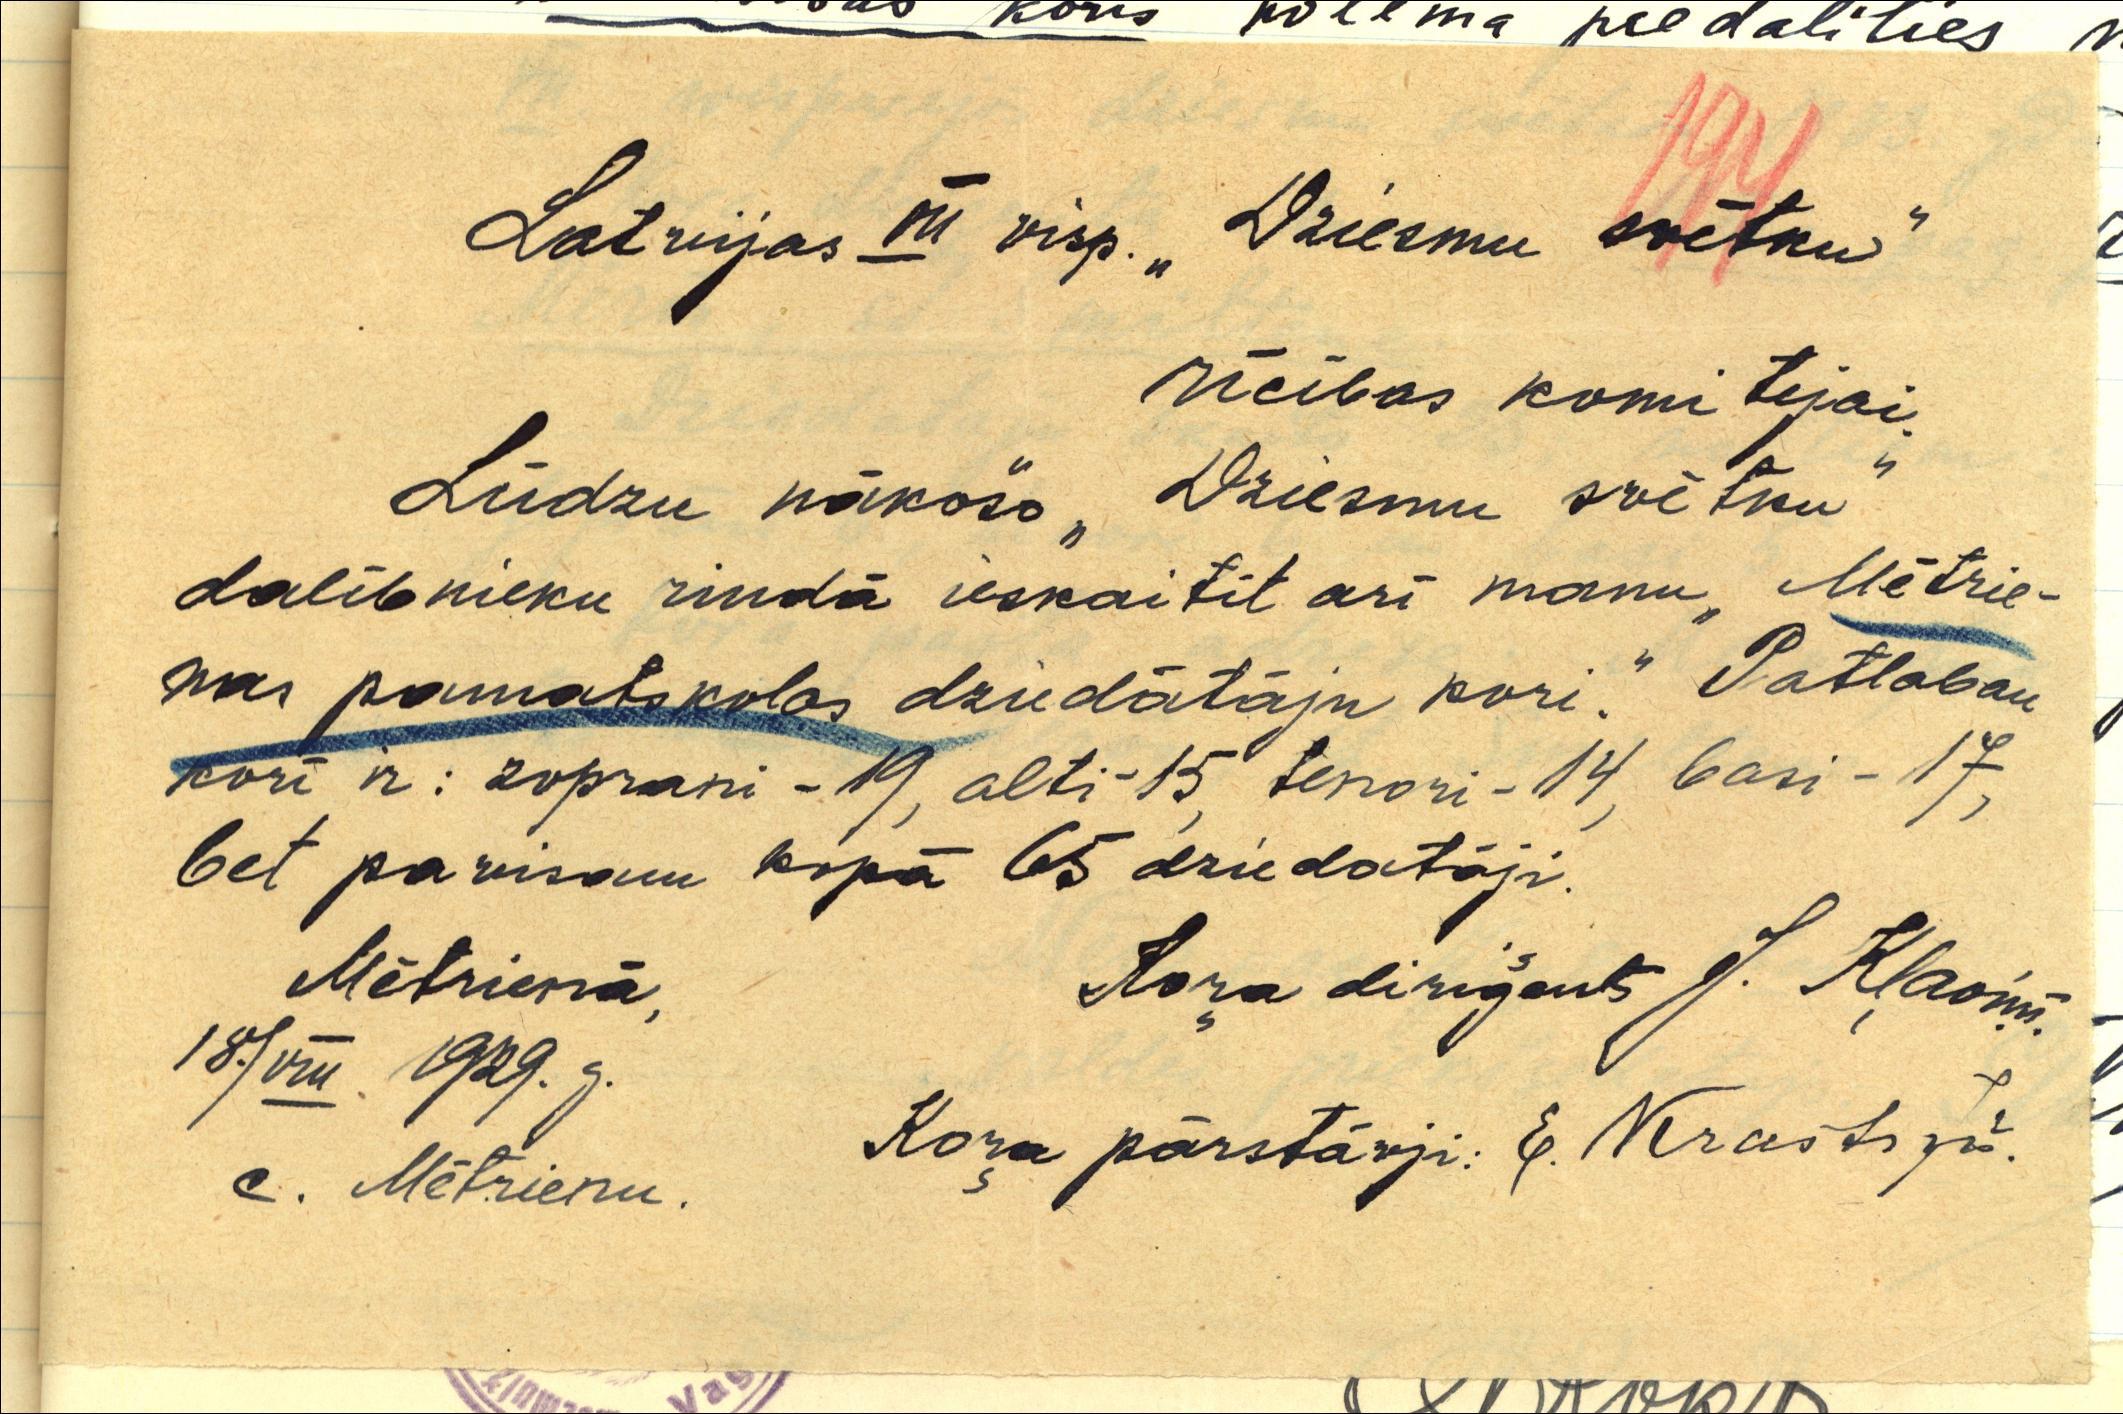 koris vēlēma piedalīties
194
Latvijas VII visp. „Dziesmu svētku"
rīcības komitejai.
Lūdzu nākošo „Dziesmu svētku"
dalībnieku rindā ieskaitīt arī manu „Mētrie-
nas pamatskolas dziedātāju kori." Patlaban
korī ir: soprani - 19, alti - 15, tenori - 14, basi - 17,
bet pavisam kopā 65 dziedatāji.
Mētrienā,
Koŗa diriģents J. Kļaviņš.
18./VIII. 1929. g.
Koŗa pārstāvji: E.
c. Mētrienu.